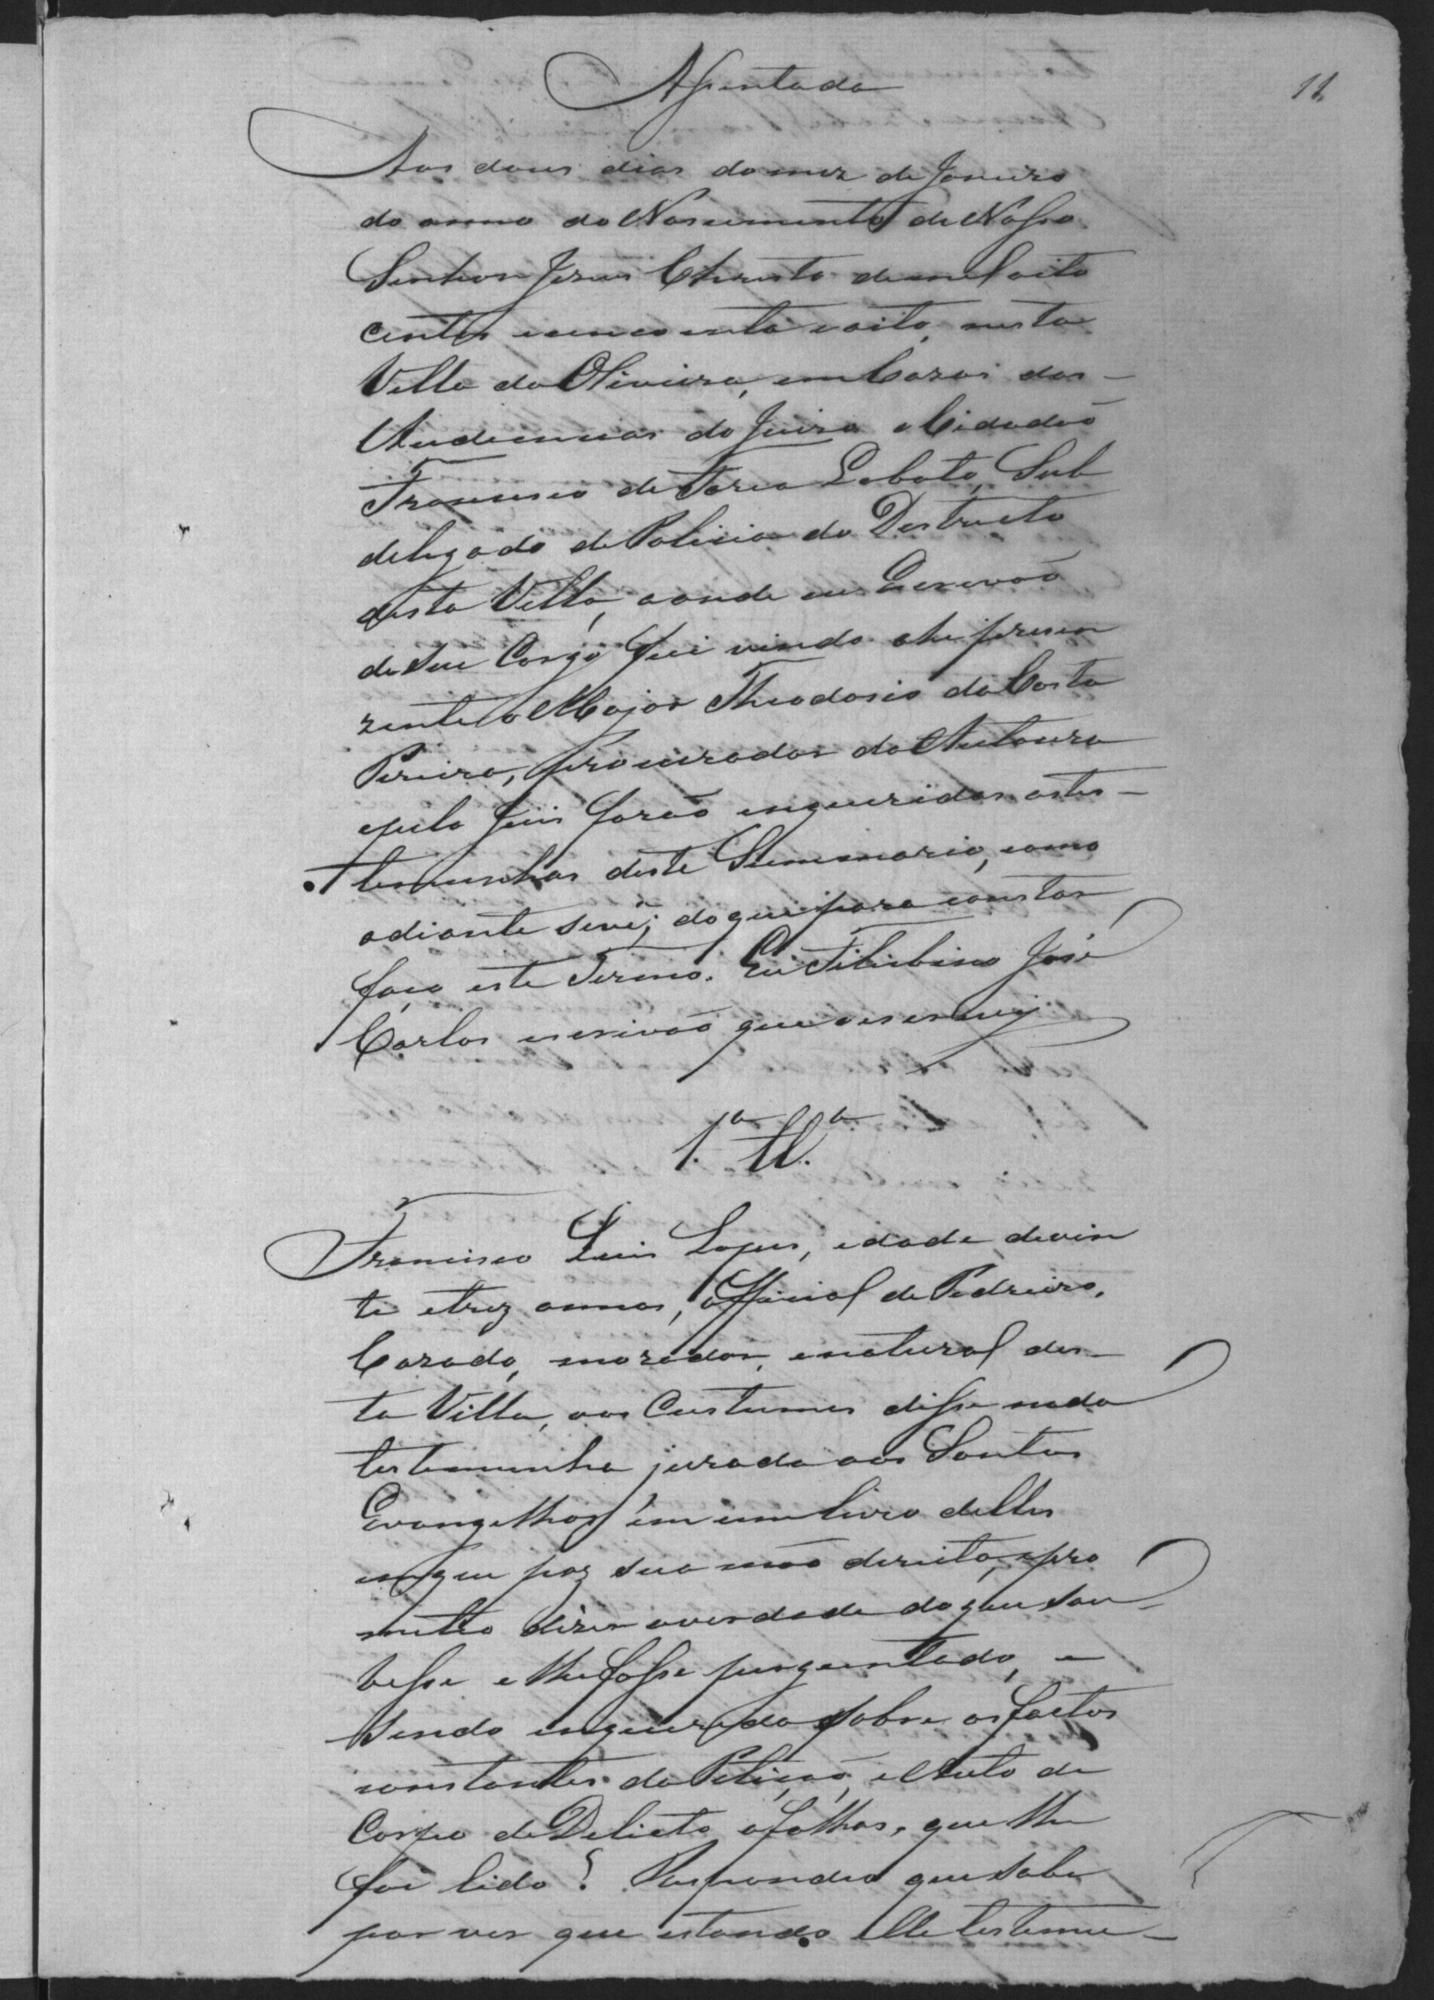 Assentada
11
Aos dous dias do mez de Janeiro
do anno do Nascimento de Nosso
Senhor Jesus Christo de mil oito
centos e cincoenta e oito, nesta
Villa da Oliveira, em Cazas das
Audiencias do Juiso o Cidadão
Francisco de Faria Lobato, Sub
delegado de Policia do Destricto
desta Villa, aonde eu Escrivão
de seu Cargo fui vindo ahe prezen
zente o Major Theodosio da Costa
Pereira, procurador da Authora
e pelo Juis forão enqueridas as tes-
temunhas deste Summario, como
adiante se vê; do que para constar
faço este Termo. Eu Felisbino José
Carlos escrivão que o escrevij
1.ª Tt.ª
Francisco Luis Lopes, edade de vin
te e trez annos, Official de Pedreiro,
Cazado, morador, e natural des-
ta Villa, aos Custumes disse nada
testemunha jurada aos Santos
Evangelhos em um livro delles
em que poz sua mão dereita, e pro
metteo dizer a verdade do que sou-
besse e lhe fosse perguntado, e
sendo enquerida sobre os factos
constantes da Petição, e Auto de
Corpo de Delicto a folhas, que lhe
foi lido? Respondeo que sabe
por ver que estando elle testemu-